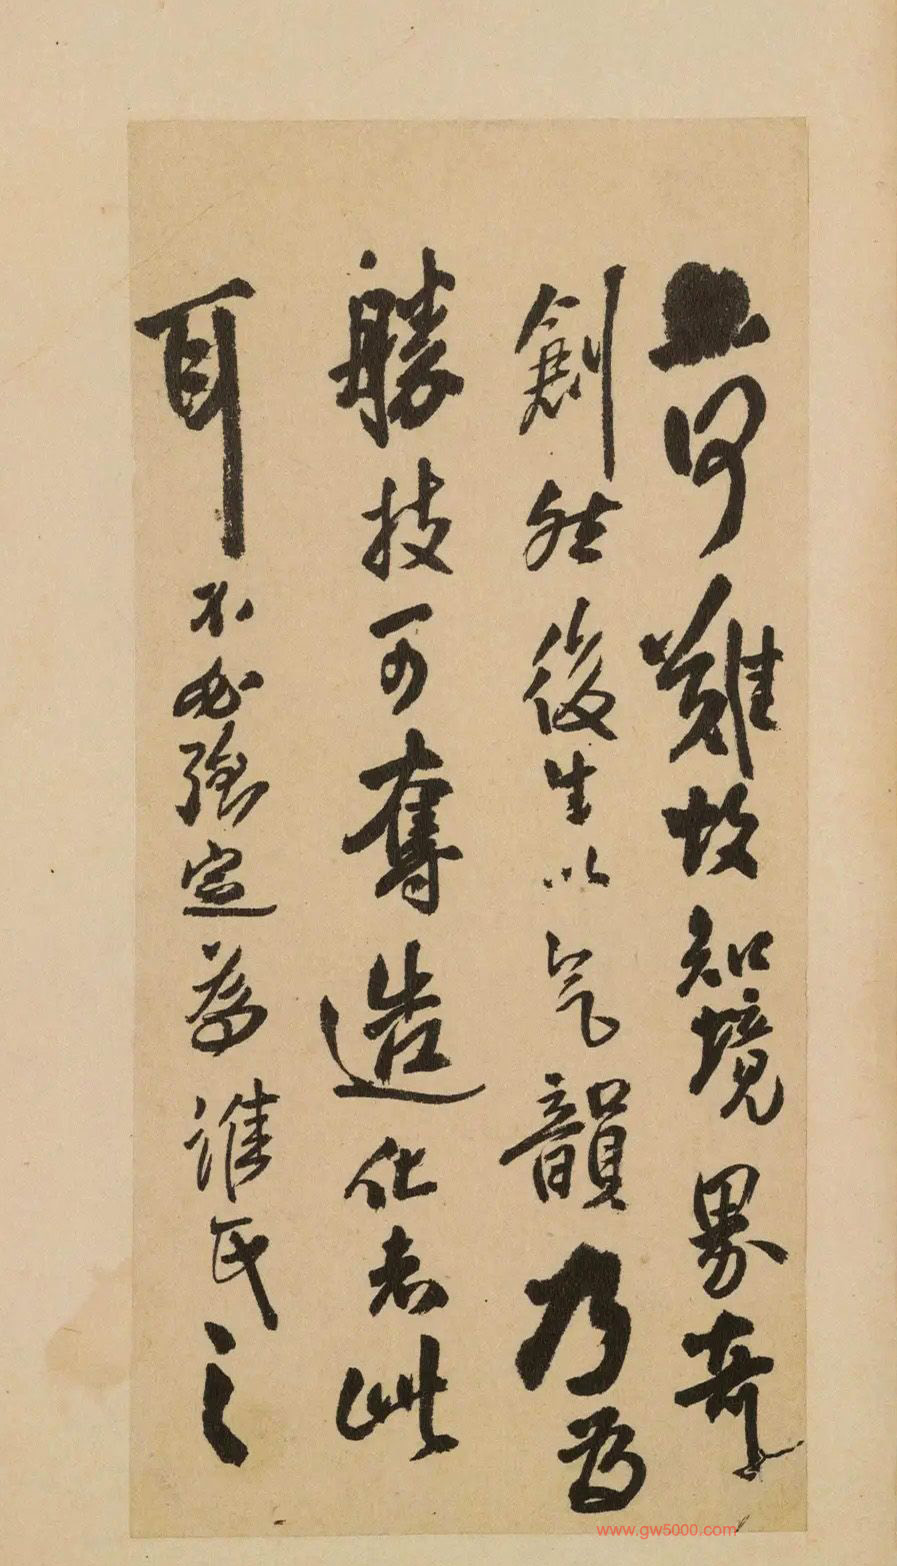 何難故知境界奇
創然後生以气韻乃為
勝技可奪造化者此
耳不必強定為誰氏之
www.gw5000.com